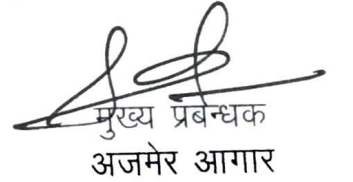 मुख्य प्रबन्धक
अजमेर आगार